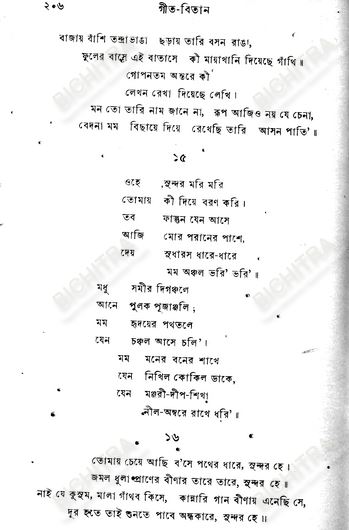 ২০৬ গীত-বিতান
বাজায় বাঁশি তন্দ্রাভাঙা ছড়ায় তারি বসন রাঙা,
ফুলের বাসে এই বাতাসে কী মায়াখানি দিয়েছে গাঁথি॥
গোপনতম অন্তরে কী
লেখন রেখা দিয়েছে লেখি।
মন তো তারি নাম জানে না, রূপ আজিও নয় যে চেনা,
বেদনা মম বিছায়ে দিয়ে রেখেছি তারি আসন পাতি'॥
১৫
ওহে সুন্দর মরি মরি
তোমায় কী দিয়ে বরণ করি।
তব ফাল্গুন যেন আসে
আজি মোর পরানের পাশে,
দেয় সুধারস ধারে-ধারে
মম অঞ্চল ভরি' ভরি'॥
মধু সমীর দিগঞ্চলে
আনে পুলক পূজাঞ্জলি;
মম হৃদয়ের পথতলে
যেন চঞ্চল আসে চলি'।
মম মনের বনের শাখে
যেন নিখিল কোকিল ডাকে,
যেন মঞ্জরী-দীপ-শিখা
নীল-অম্বরে রাখে ধরি'॥
১৬
তোমায় চেয়ে আছি ব'সে পথের ধারে, সুন্দর হে।
জমল ধুলা প্রাণের বীণার তারে তারে, সুন্দর হে॥
নাই যে কুসুম, মালা গাঁথব কিসে, কান্নারি গান বীণায় এনেছি সে,
দূর হতে তাই শুনতে পাবে অন্ধকারে, সুন্দর হে॥
BICHITRA